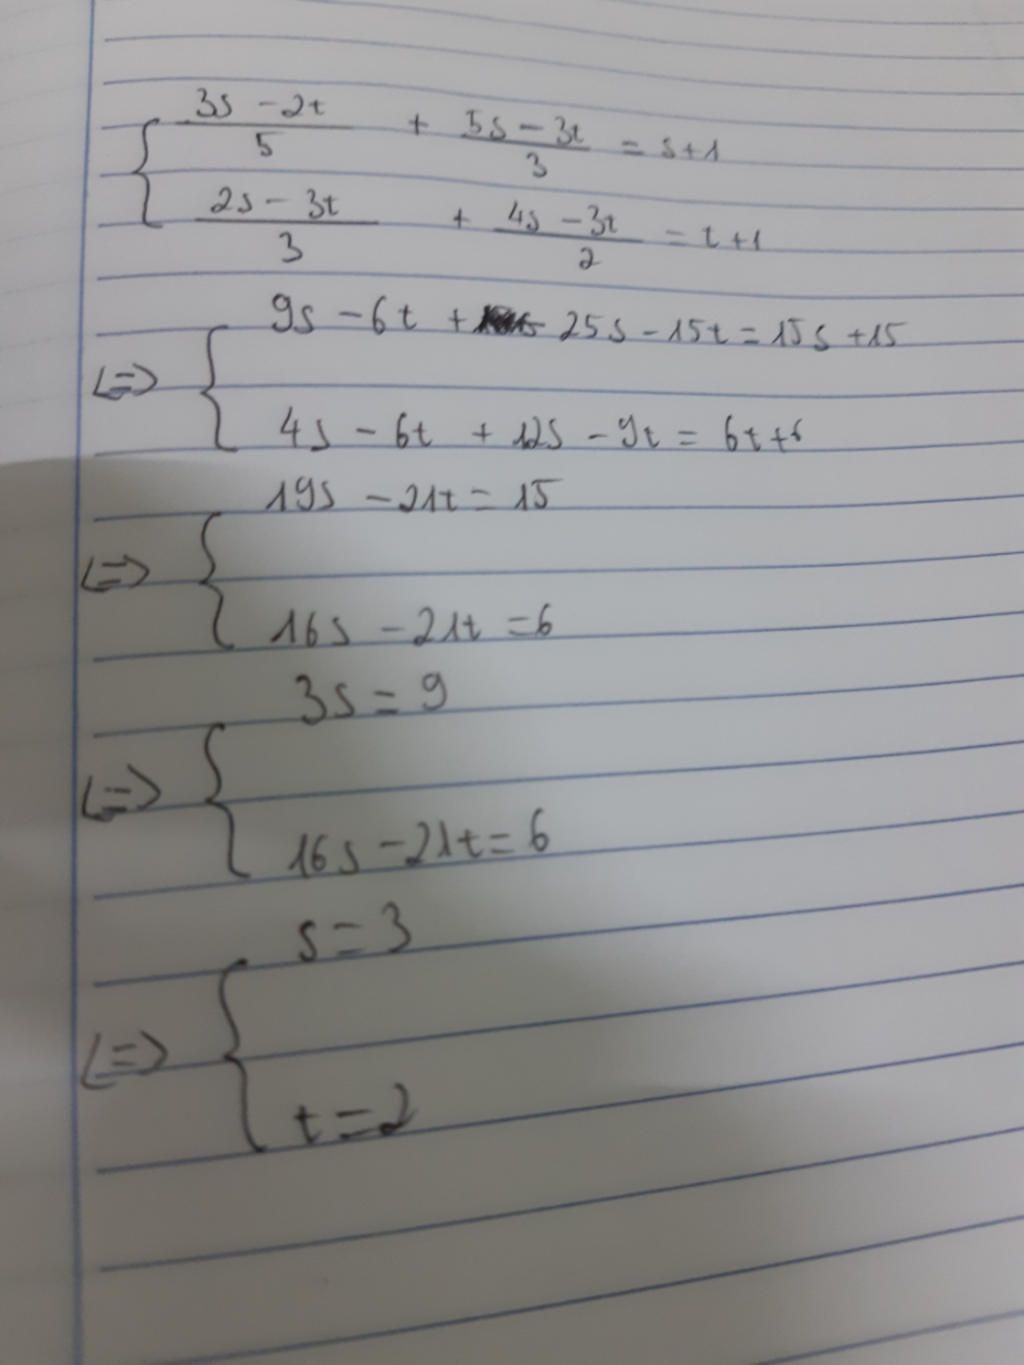 { (3s - 2t)/5 + (5s - 3t)/3 = s+1
(2s - 3t)/3 + (4s - 3t)/2 = t+1
<=> { 9s - 6t + 25s - 15t = 15s + 15
4s - 6t + 12s - 9t = 6t + 6
<=> { 19s - 21t = 15
16s - 21t = 6
<=> { 3s = 9
16s - 21t = 6
<=> { s = 3
t = 2